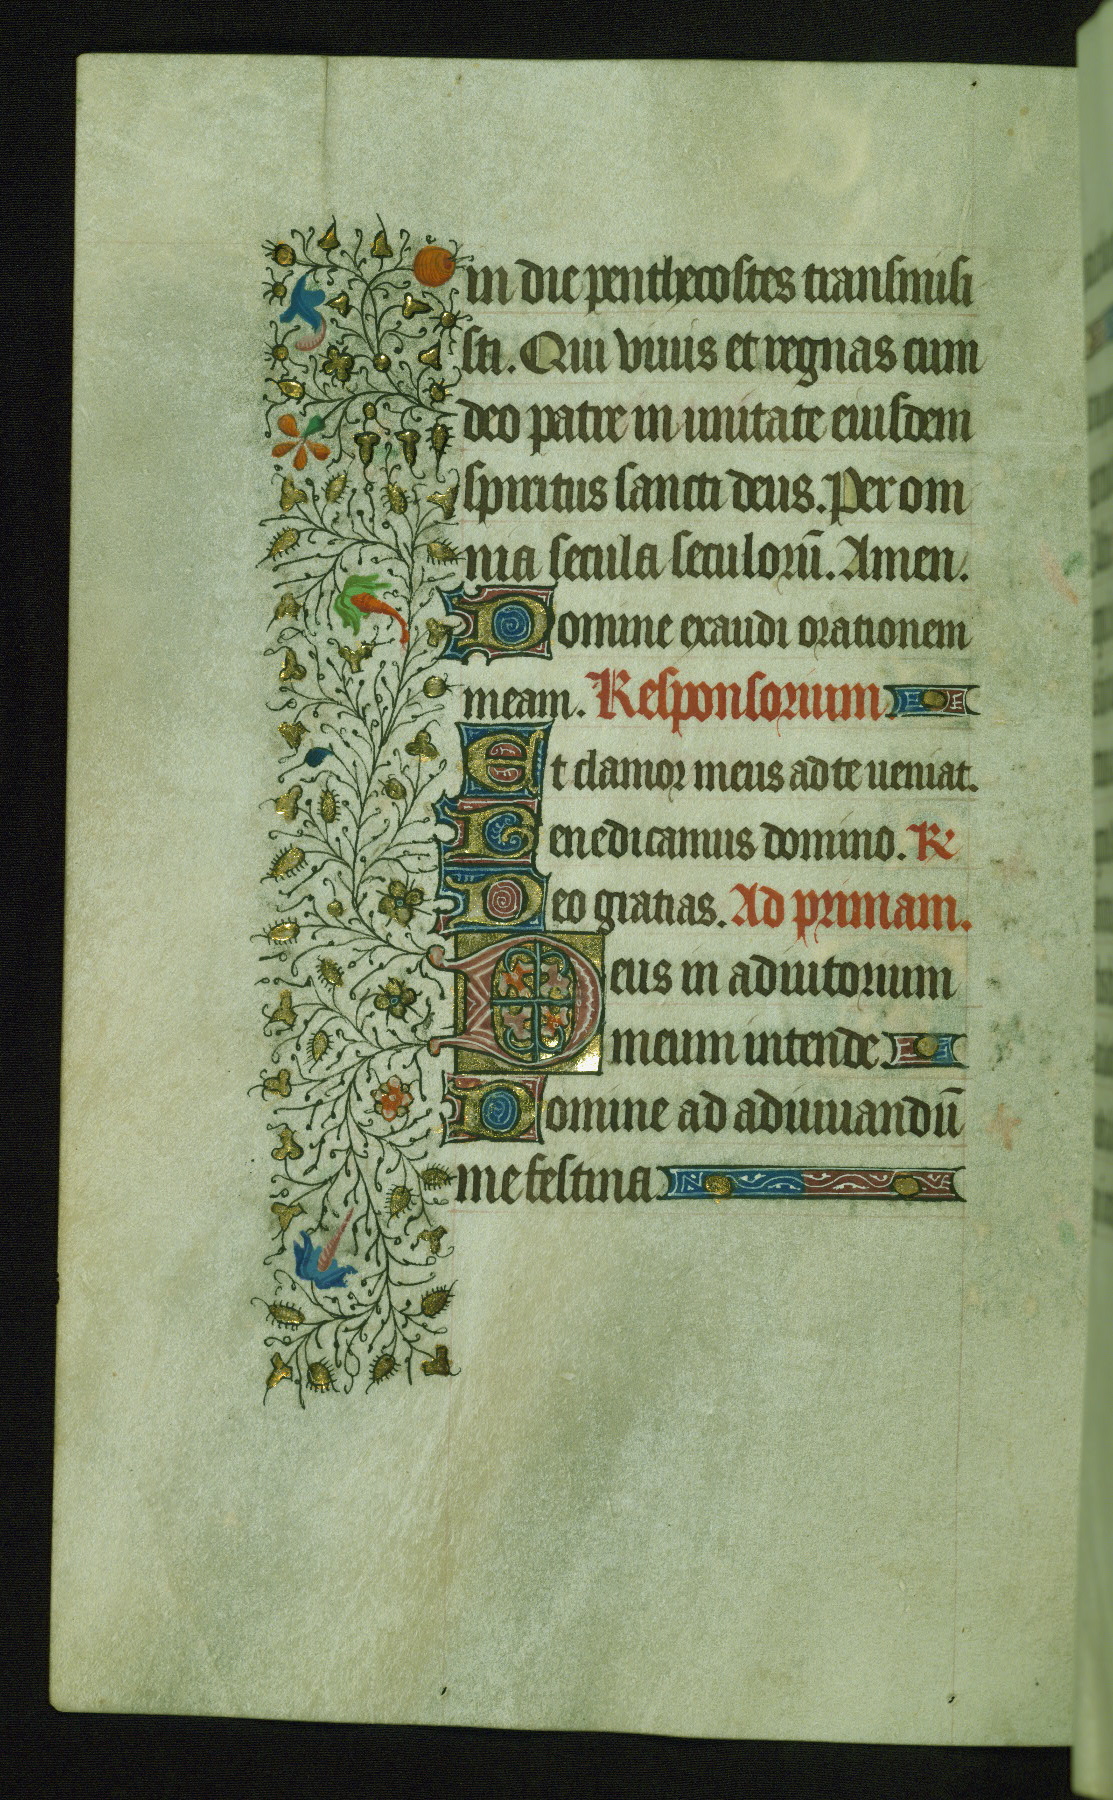 in die penthecostes transmisi
sti. Qui viuis et regnas cum
deo patre in unitate eiusdem
spiritus sancti deus. Per om
nia secula seculorū. Amen.
Domine exaudi orationem
meam. Responsorium
Et clamor meus ad te ueniat.
Benedicamus domino. R
Deo gratias. Ad primam.
Deus in adiutorium
meum intende
Domine ad adiuuandū
me festina